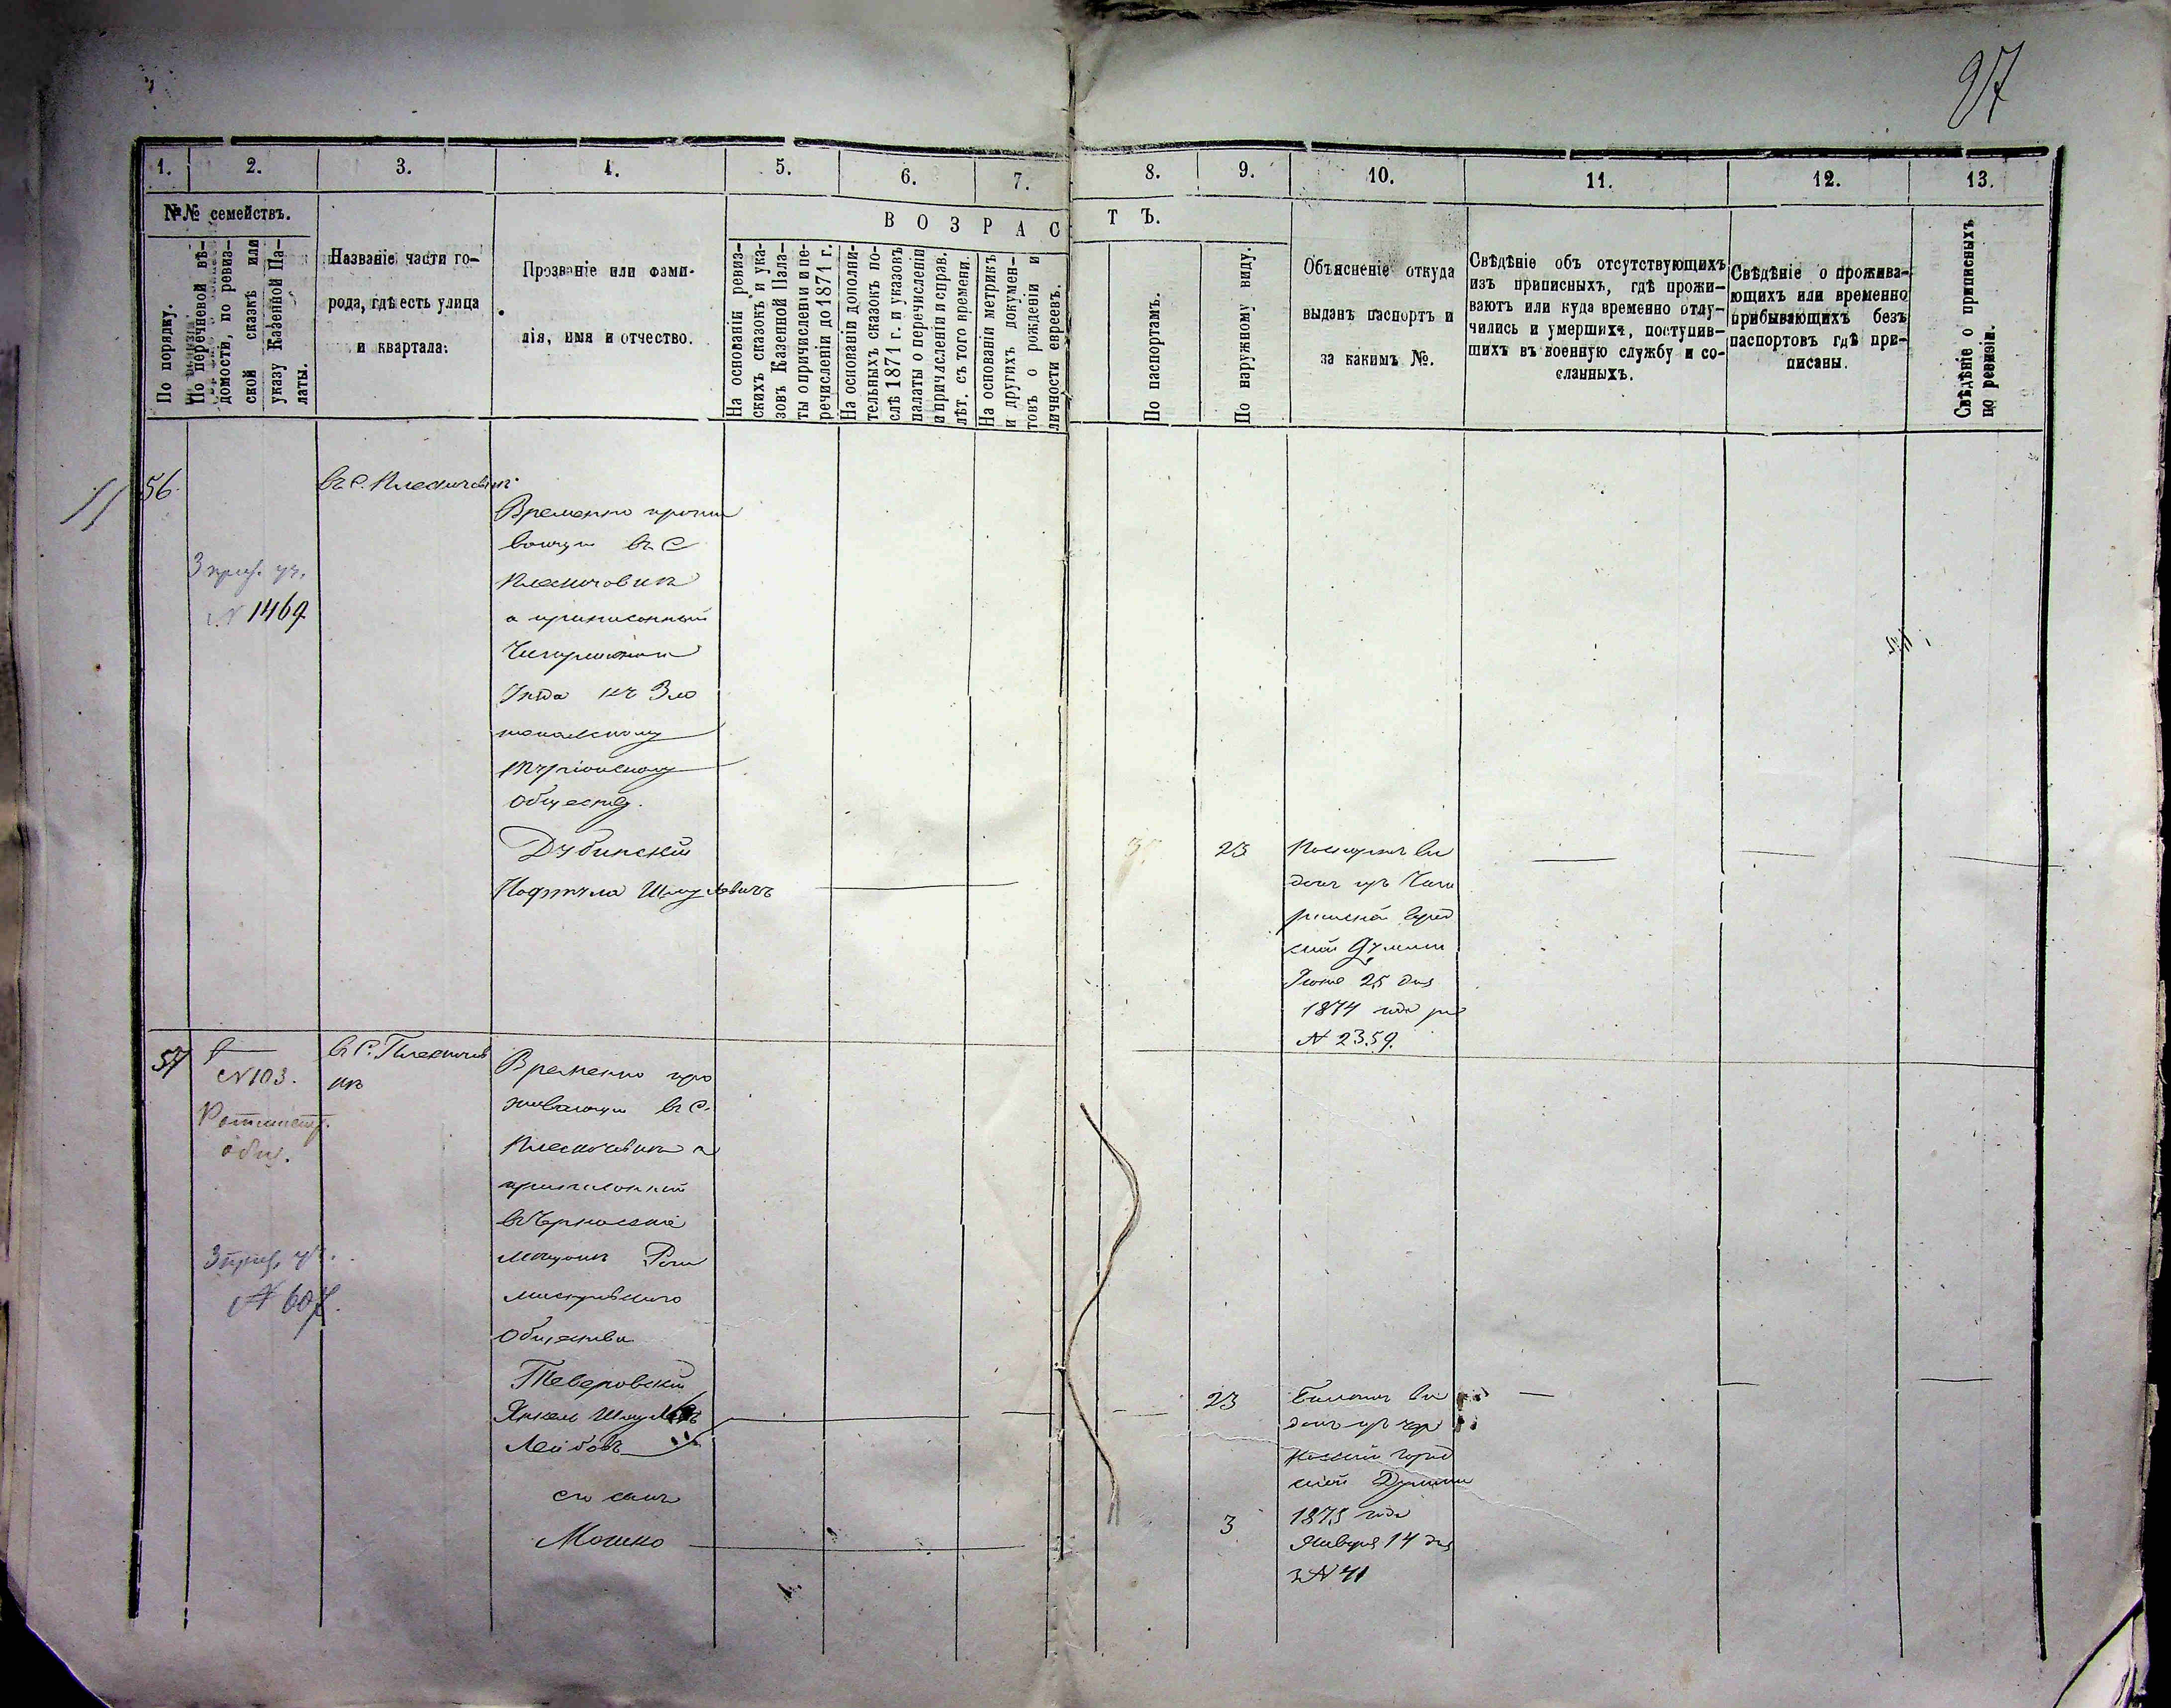 27
1.
2.
3.
4.
5.
6.
7.
8.
9.
10.
11.
12.
13.
№№ семействъ.
По порядку.
По перечневой вѣ-
домости, по ревиз-
ской сказкѣ или
указу Казенной Па-
латы.
Названіе части го-
рода, гдѣ есть улица
и квартала.
Прозваніе или фами-
лія, имя и отчество.
ВОЗРАСТЪ.
На основаніи ревиз-
скихъ сказокъ и ука-
зовъ Казенной Пала-
ты о причисленіи и пе-
речисленіи до 1871 г.
На основаніи дополни-
тельныхъ сказокъ по-
слѣ 1871 г. и указовъ
палаты о перечисленіи
и причисленіи и справ.
лѣт. съ того времени.
На основаніи метрикъ
и другихъ докумен-
товъ о рожденіи и
личности евреевъ.
По паспортамъ.
По наружному виду.
Объясненіе откуда
выданъ паспортъ и
за какимъ №.
Свѣдѣніе объ отсутствующихъ
изъ приписныхъ, гдѣ прожи-
ваютъ или куда временно отлу-
чились и умершихъ, поступив-
шихъ въ военную службу и со-
сланныхъ.
Свѣдѣніе о прожива-
ющихъ или временно
прибывающихъ безъ
паспортовъ гдѣ при-
писаны.
Свѣдѣніе о приписныхъ
по ревизіи.
56.
3 приз. уч.
№ 1469
Временно прожи
вающи въ С
а приписанный
Уѣзда къ Зло
польскому
Обществу.
Дубинскій
Нафтула Шмулевичъ
23
Паспортъ вы
данъ изъ Чиги
ринской Город
ской Думы
Іюня 25 дня
1874 года за
№ 2359.
57
№ 103.
Ротмист.
общ.
3 приз. уч.
№ 607.
Временно про
живающи въ С.
приписанный
Рот
мистровского
Общества
Теверовскій
Янкель Шмуль
Лейбовъ
его сынъ
Мошко
23
3
Билетъ вы
данъ изъ Чер
касской Город
ской Думы
1875 года
Января 14 дня
з № 41